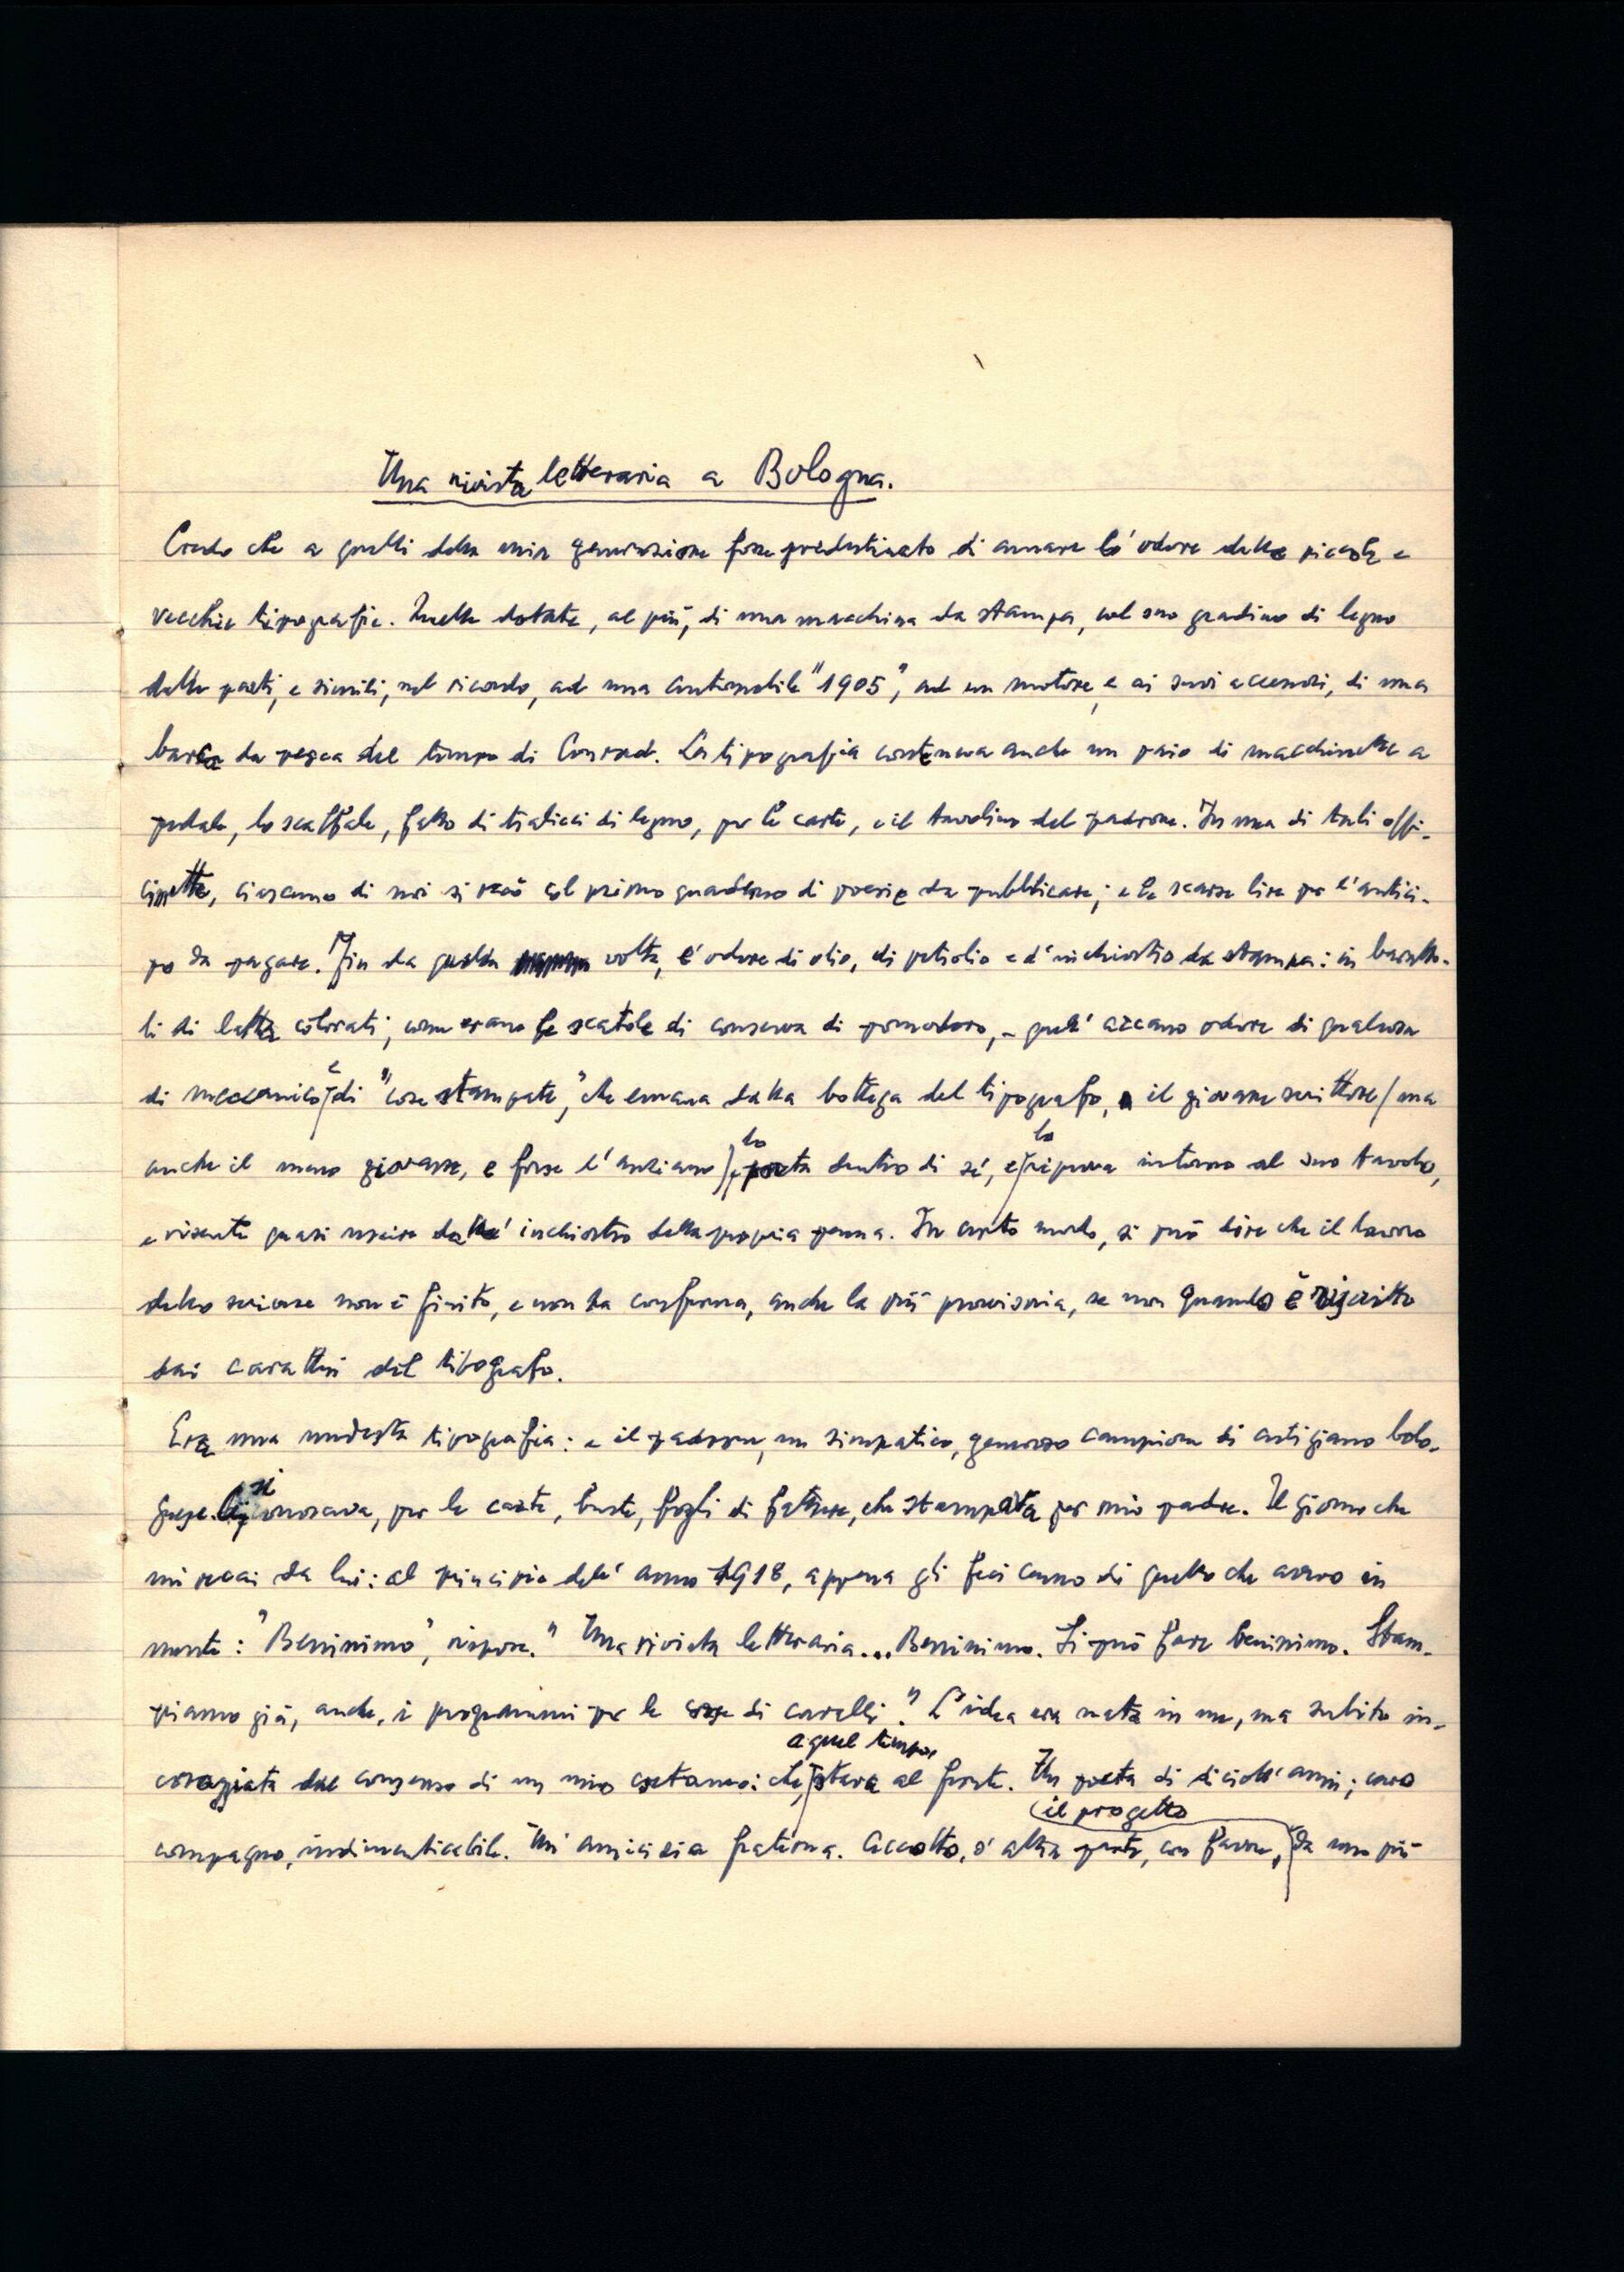 Una rivista letteraria a Bologna.
Credo che a quelli della mia generazione fosse predestinato di amare l'odore delle piccole e
vecchie tipografie. Quelle dotate, al più, di una macchina da stampa, col suo gradino di legno
dalle parti, e simili, nel ricordo, ad una automobile "1905", ad un motore, e ai suoi accessori, di una
barca da pesca del tempo di Conrad. La tipografia conteneva anche un paio di macchinette a
pedale, lo scaffale, fatto di tralicci di legno, per le carte, e il tavolino del padrone. In una di tali offi-
cinette, ciascuno di noi si recò col primo quaderno di poesie da pubblicare; e le scarse lire per l'antici-
po da pagare. Fin da quella volta, l'odore di olio, di petrolio e d'inchiostro da stampa: in baratto-
li di latta colorati, com'erano le scatole di conserva di pomodoro, - quell' arcano odore di qualcosa
di meccanico e di "cose stampate", che emana dalla bottega del tipografo, il giovane scrittore (ma
anche il meno giovane, e forse l'anziano) lo porta dentro di sé, e lo ripone intorno al suo tavolo,
e risente quasi uscire dall' inchiostro della propria penna. In certo modo, si può dire che il lavoro
dello scrivere non è finito, e non ha conferma, anche la più provvisoria, se non quando è riscritto
dai caratteri del tipografo.
Era una modesta tipografia: e il padrone, un simpatico, generoso campione di artigiano bolo-
gnese. si conosceva, per le carte, buste, fogli di fatture, che stampava per mio padre. Il giorno che
mi recai da lui: al principio dell' anno 1918, appena gli feci cenno di quello che avevo in
mente: "Benissimo", rispose. "Una rivista letteraria... Benissimo. Si può fare benissimo. Stam-
piamo già, anche, i programmi per le corse di cavalli." L'idea era nata in me, ma subito in-
coraggiata dal consenso di un mio coetaneo: che, a quel tempo, stava al fronte. Un poeta di diciott'anni; caro
compagno, indimenticabile. Un' amicizia fraterna. Accolto, d'altra parte, con favore, il progetto da uno più